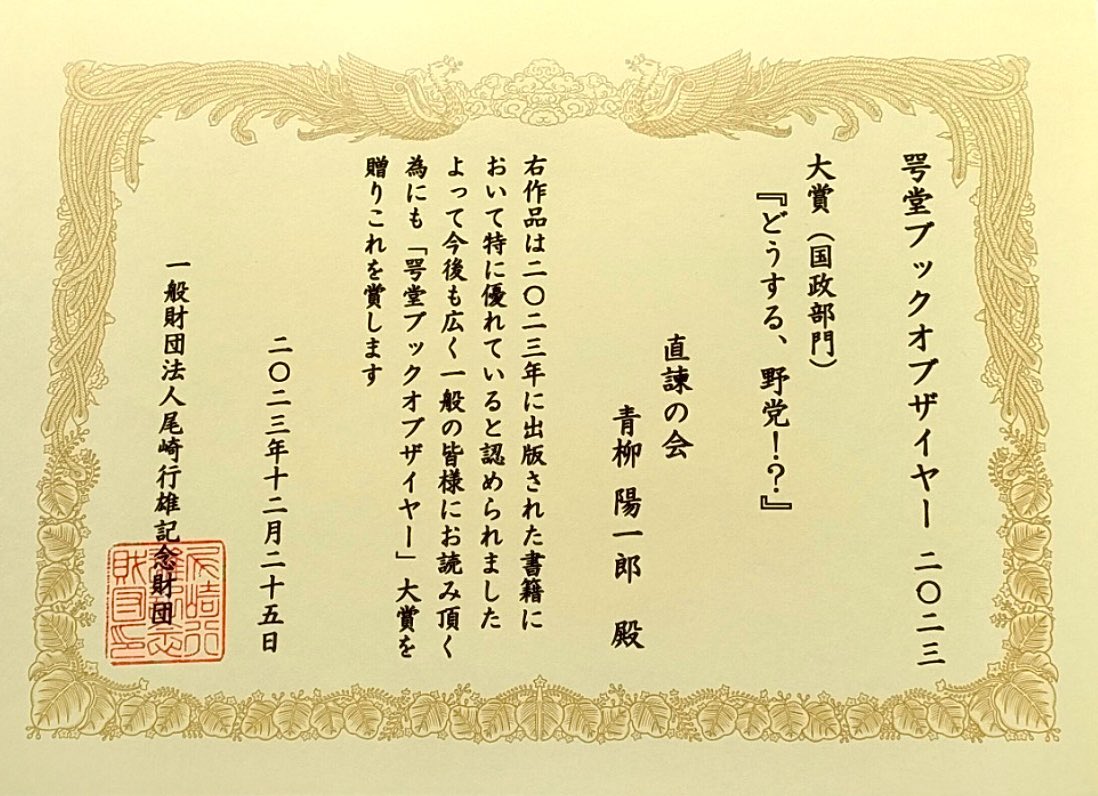 咢堂ブックオブザイヤー 二〇二三
大賞（国政部門）
『どうする、野党！？』
直諫の会
青柳 陽一郎 殿
右作品は二〇二三年に出版された書籍に
おいて特に優れていると認められました
よって今後も広く一般の皆様にお読み頂く
為にも「咢堂ブックオブザイヤー」大賞を
贈りこれを賞します
二〇二三年十二月二十五日
一般財団法人尾崎行雄記念財団